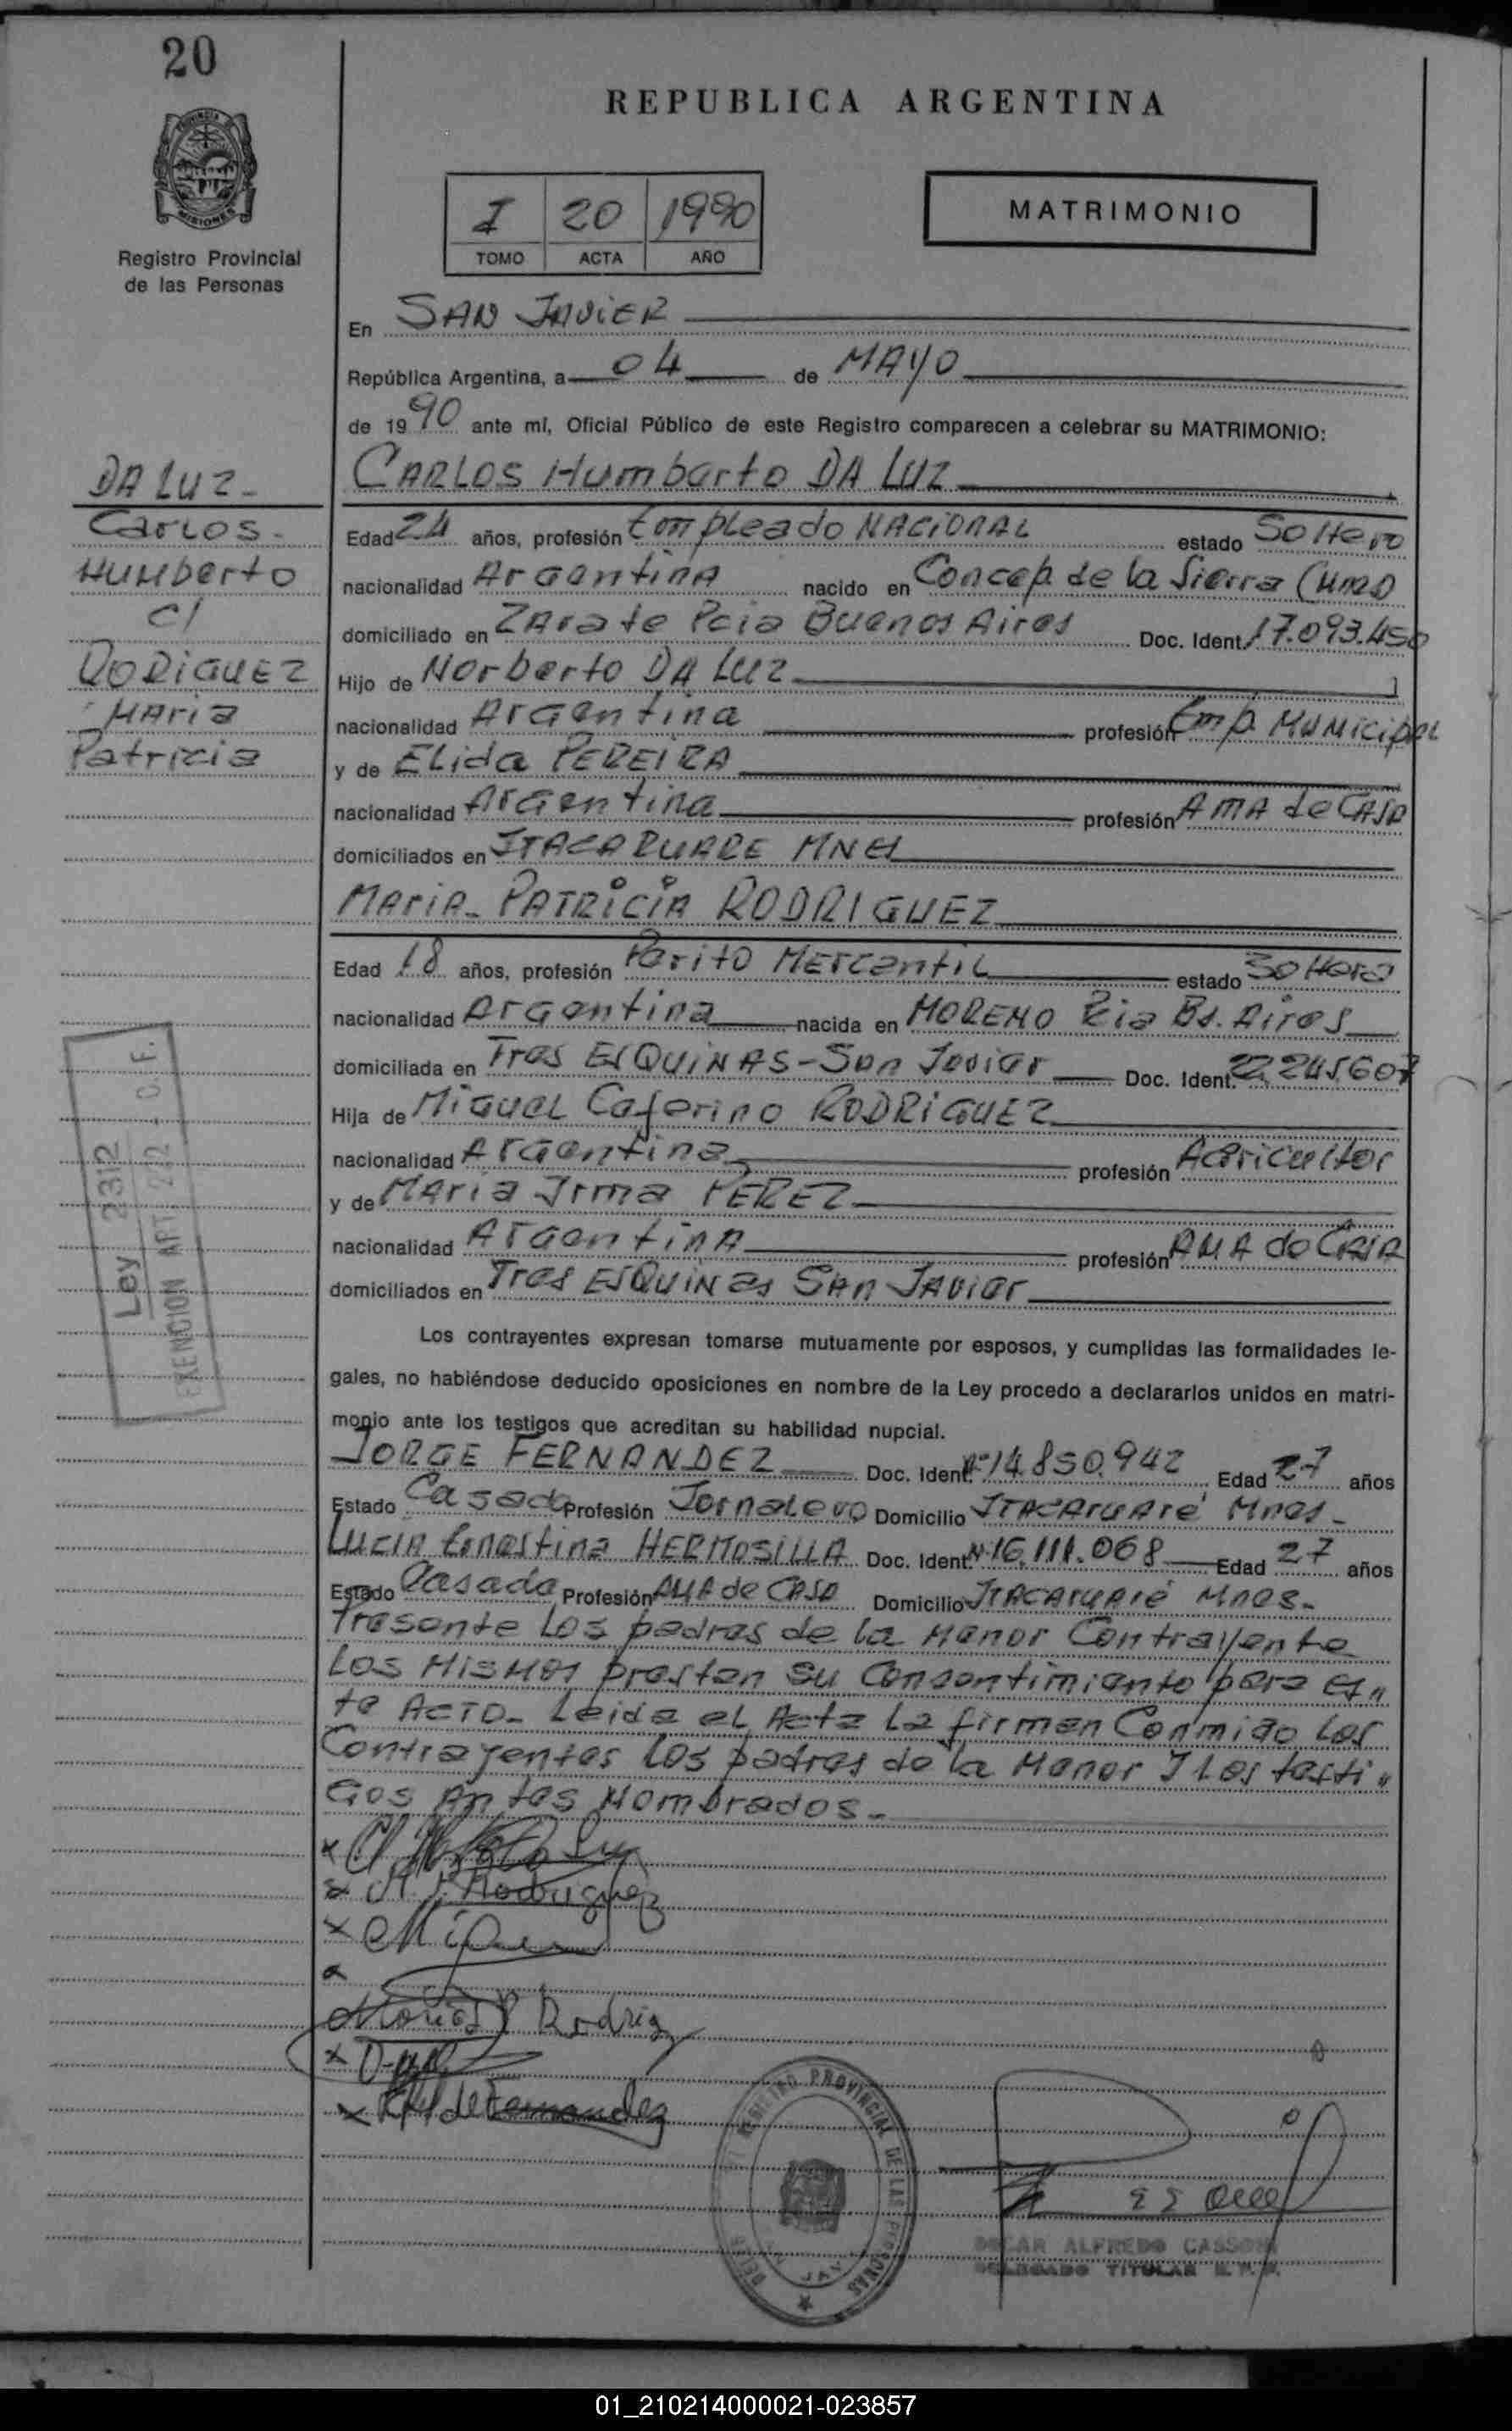 20
REPUBLICA ARGENTINA
PROVINCIA
MISIONES
Registro Provincial
de las Personas
I 20 1990
TOMO ACTA AÑO
MATRIMONIO
En SAN JAVIER
República Argentina, a 04 de MAYO
de 1990 ante mí, Oficial Público de este Registro comparecen a celebrar su MATRIMONIO:
DA LUZ-
Carlos-
Humberto
C/
RODRIGUEZ
Maria
Patricia
CARLOS Humberto DA LUZ
Edad 24 años, profesión Empleado NACIONAL estado Soltero
nacionalidad Argentina nacido en Concep. de la Sierra
domiciliado en Zarate Pcia Buenos Aires Doc. Ident. 17.093.450
Hijo de Norberto DA LUZ
nacionalidad Argentina profesión Emp. Municipal
y de Elida PEREIRA
nacionalidad Argentina profesión AMA de CASA
domiciliados en ITACARUARE MNES
MARIA- PATRICIA RODRIGUEZ
Edad 18 años, profesión Perito Mercantil estado Soltera
nacionalidad Argentina nacida en MORENO Pcia Bs. Aires
domiciliada en Tres ESQUINAS-San Javier Doc. Ident. 22.245.607
Hija de Miguel Ceferino RODRIGUEZ
nacionalidad Argentina profesión Agricultor
y de Maria Irma PEREZ
nacionalidad Argentina profesión AMA de CASA
domiciliados en Tres ESQUINAS SAN JAVIER
Ley 2312
EXENCION ART. 212 - C.F.
Los contrayentes expresan tomarse mutuamente por esposos, y cumplidas las formalidades le-
gales, no habiéndose deducido oposiciones en nombre de la Ley procedo a declararlos unidos en matri-
monio ante los testigos que acreditan su habilidad nupcial.
JORGE FERNANDEZ Doc. Ident. Nº 14.850.942 Edad 27 años
Estado Casado Profesión Jornalero Domicilio ITACARUARé Mnes-
Lucia Ernestina HERMOSILLA Doc. Ident. Nº 16.111.068 Edad 27 años
Estado Casada Profesión AMA de CASA Domicilio ITACARUARé Mnes-
Presente Los padres de la Menor Contrayente
Los Mismos prestan su Consentimiento para es"
te ACTO- Leida el Acta La firman Conmigo Los
Contrayentes Los padres de la Menor Y Los testi"
Gos Antes Nombrados-
x
x M. P. Rodriguez
x
x
Maria P Rodrig
x
x de Fernandez
REGISTRO PROVINCIAL DE LAS PERSONAS
OSCAR ALFREDO CASSONI
DELEGADO TITULAR
01_210214000021-023857